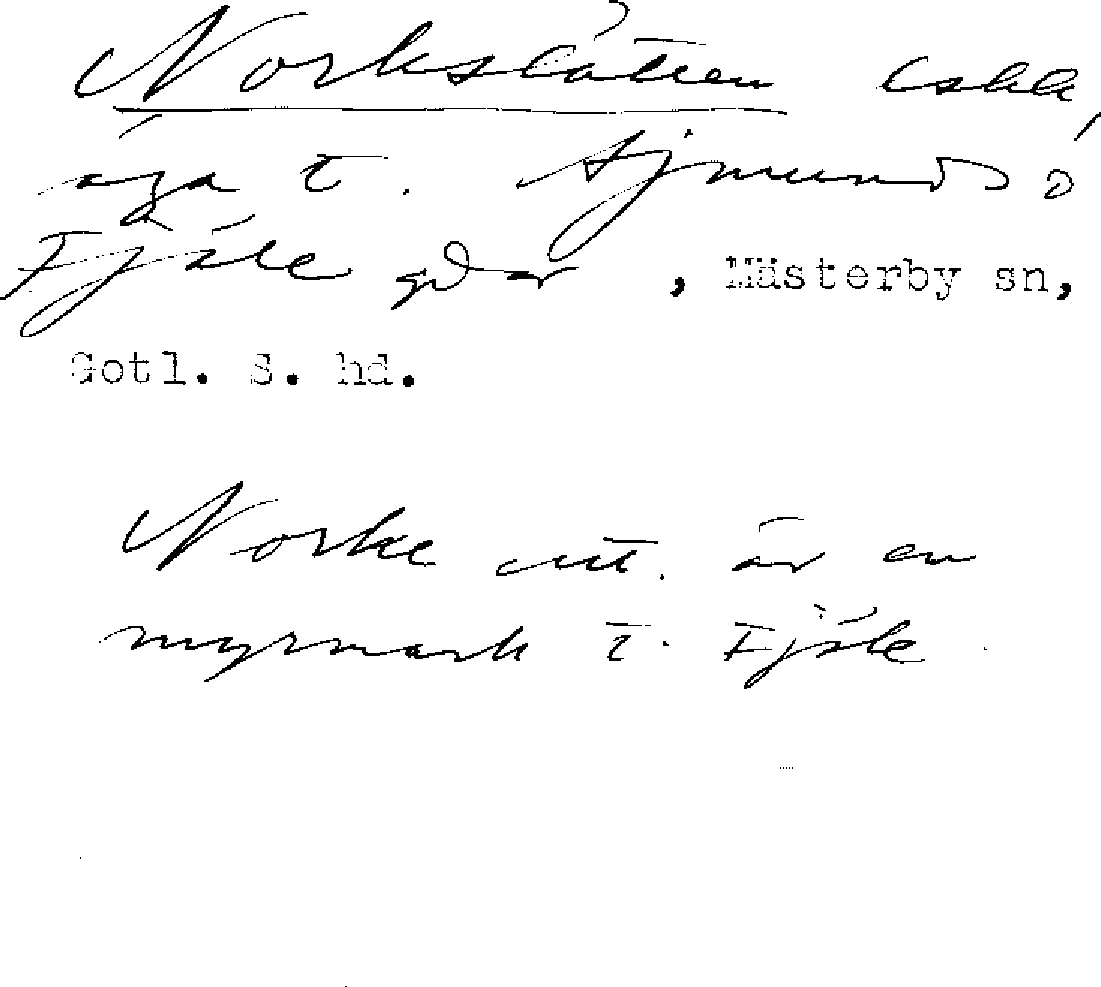 Norkslåtten
äga t. Ajmunds o
Fjäle gdar , Mästerby sn,
Gotl. S. hd.
Norke är en
myrmark t. Fjäle.